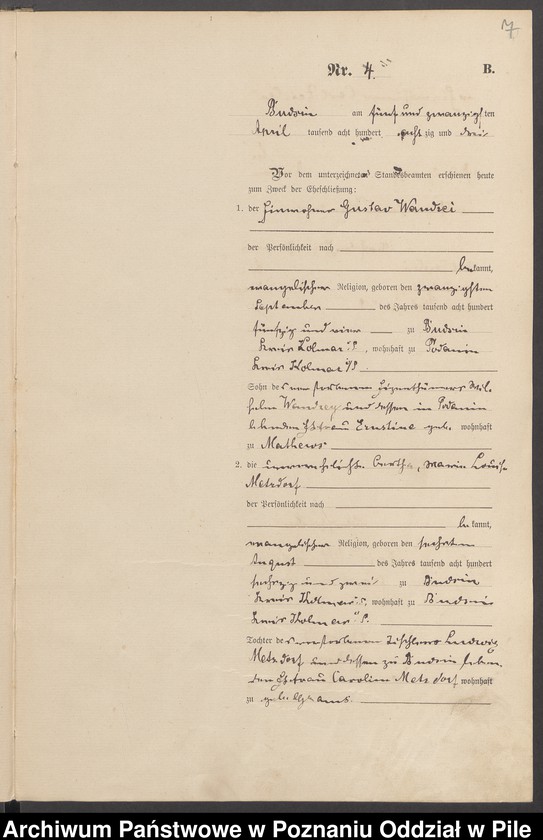 7
Nr. 4. B.
Budsin am fünf und zwanzigsten
April tausend acht hundert achtzig und drei
Vor dem unterzeichneten Standesbeamten erschienen heute
zum Zweck der Eheschließung:
1. der Einwohner Gustav Wandrei
der Persönlichkeit nach
bekannt,
evangelischer Religion, geboren den zwanzigsten
September des Jahres tausend acht hundert
fünfzig und vier zu Budsin
Kreis Kolmar i/P., wohnhaft zu Podanin
Kreis Kolmar i/P.
Sohn des verstorbenen Eigenthümers Wil-
helm Wandrey und dessen in Podanin
lebenden Ehefrau Ernstine geb. wohnhaft
zu Mathews
2. die unverehelichte Bertha, Maria Louise
Metzdorf
der Persönlichkeit nach
bekannt,
evangelischer Religion, geboren den sechsten
August des Jahres tausend acht hundert
sechszig und zwei zu Budsin
Kreis Kolmar i. P., wohnhaft zu Budsin
Kreis Kolmar i. P.
Tochter des verstorbenen Tischlers Ludwig
Metzdorf und dessen zu Budsin leben-
den Ehefrau Caroline Metzdorf wohnhaft
zu geb.
Archiwum Państwowe w Poznaniu Oddział w Pile